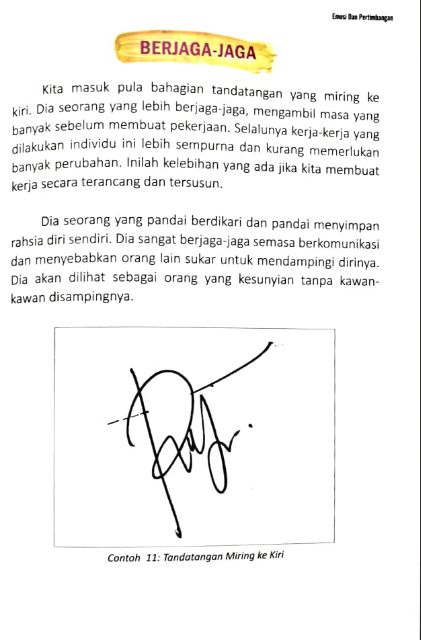 Emosi Dan Pertimbangan
BERJAGA-JAGA
Kita masuk pula bahagian tandatangan yang miring ke
kiri. Dia seorang yang lebih berjaga-jaga, mengambil masa yang
banyak sebelum membuat pekerjaan. Selalunya kerja-kerja yang
dilakukan individu ini lebih sempurna dan kurang memerlukan
banyak perubahan. Inilah kelebihan yang ada jika kita membuat
kerja secara terancang dan tersusun.
Dia seorang yang pandai berdikari dan pandai menyimpan
rahsia diri sendiri. Dia sangat berjaga-jaga semasa berkomunikasi
dan menyebabkan orang lain sukar untuk mendampingi dirinya.
Dia akan dilihat sebagai orang yang kesunyian tanpa kawan-
kawan disampingnya.
Contoh 11: Tandatangan Miring ke Kiri